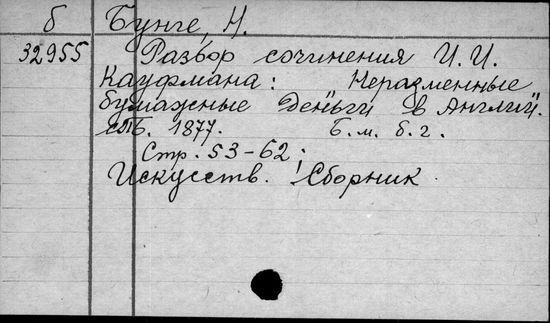 б Бунге, Н.
32955 Разбор сочинения И. И.
Кауфмана: "Неразменные
бумажные деньги в Англии".
СПБ. 1877. Б. м. б. г.
Стр. 53-62.
Искусств. Сборник.